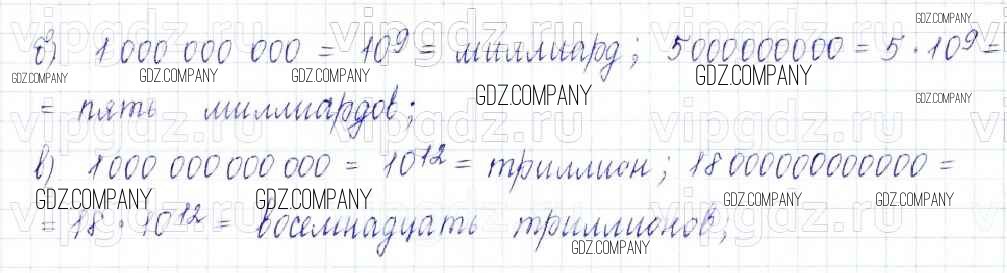 б) 1 000 000 000 = 10⁹ = миллиард; 5000000000 = 5 · 10⁹ =
= пять миллиардов;
в) 1000 000 000 000 = 10¹² = триллион; 18 000000000000 =
= 18 · 10¹² = восемнадцать триллионов;
GDZ.COMPANY
GDZ.COMPANY
GDZ.COMPANY
GDZ.COMPANY
GDZ.COMPANY
GDZ.COMPANY
GDZ.COMPANY
GDZ.COMPANY
GDZ.COMPANY
GDZ.COMPANY
GDZ.COMPANY
GDZ.COMPANY
vipgdz.ru